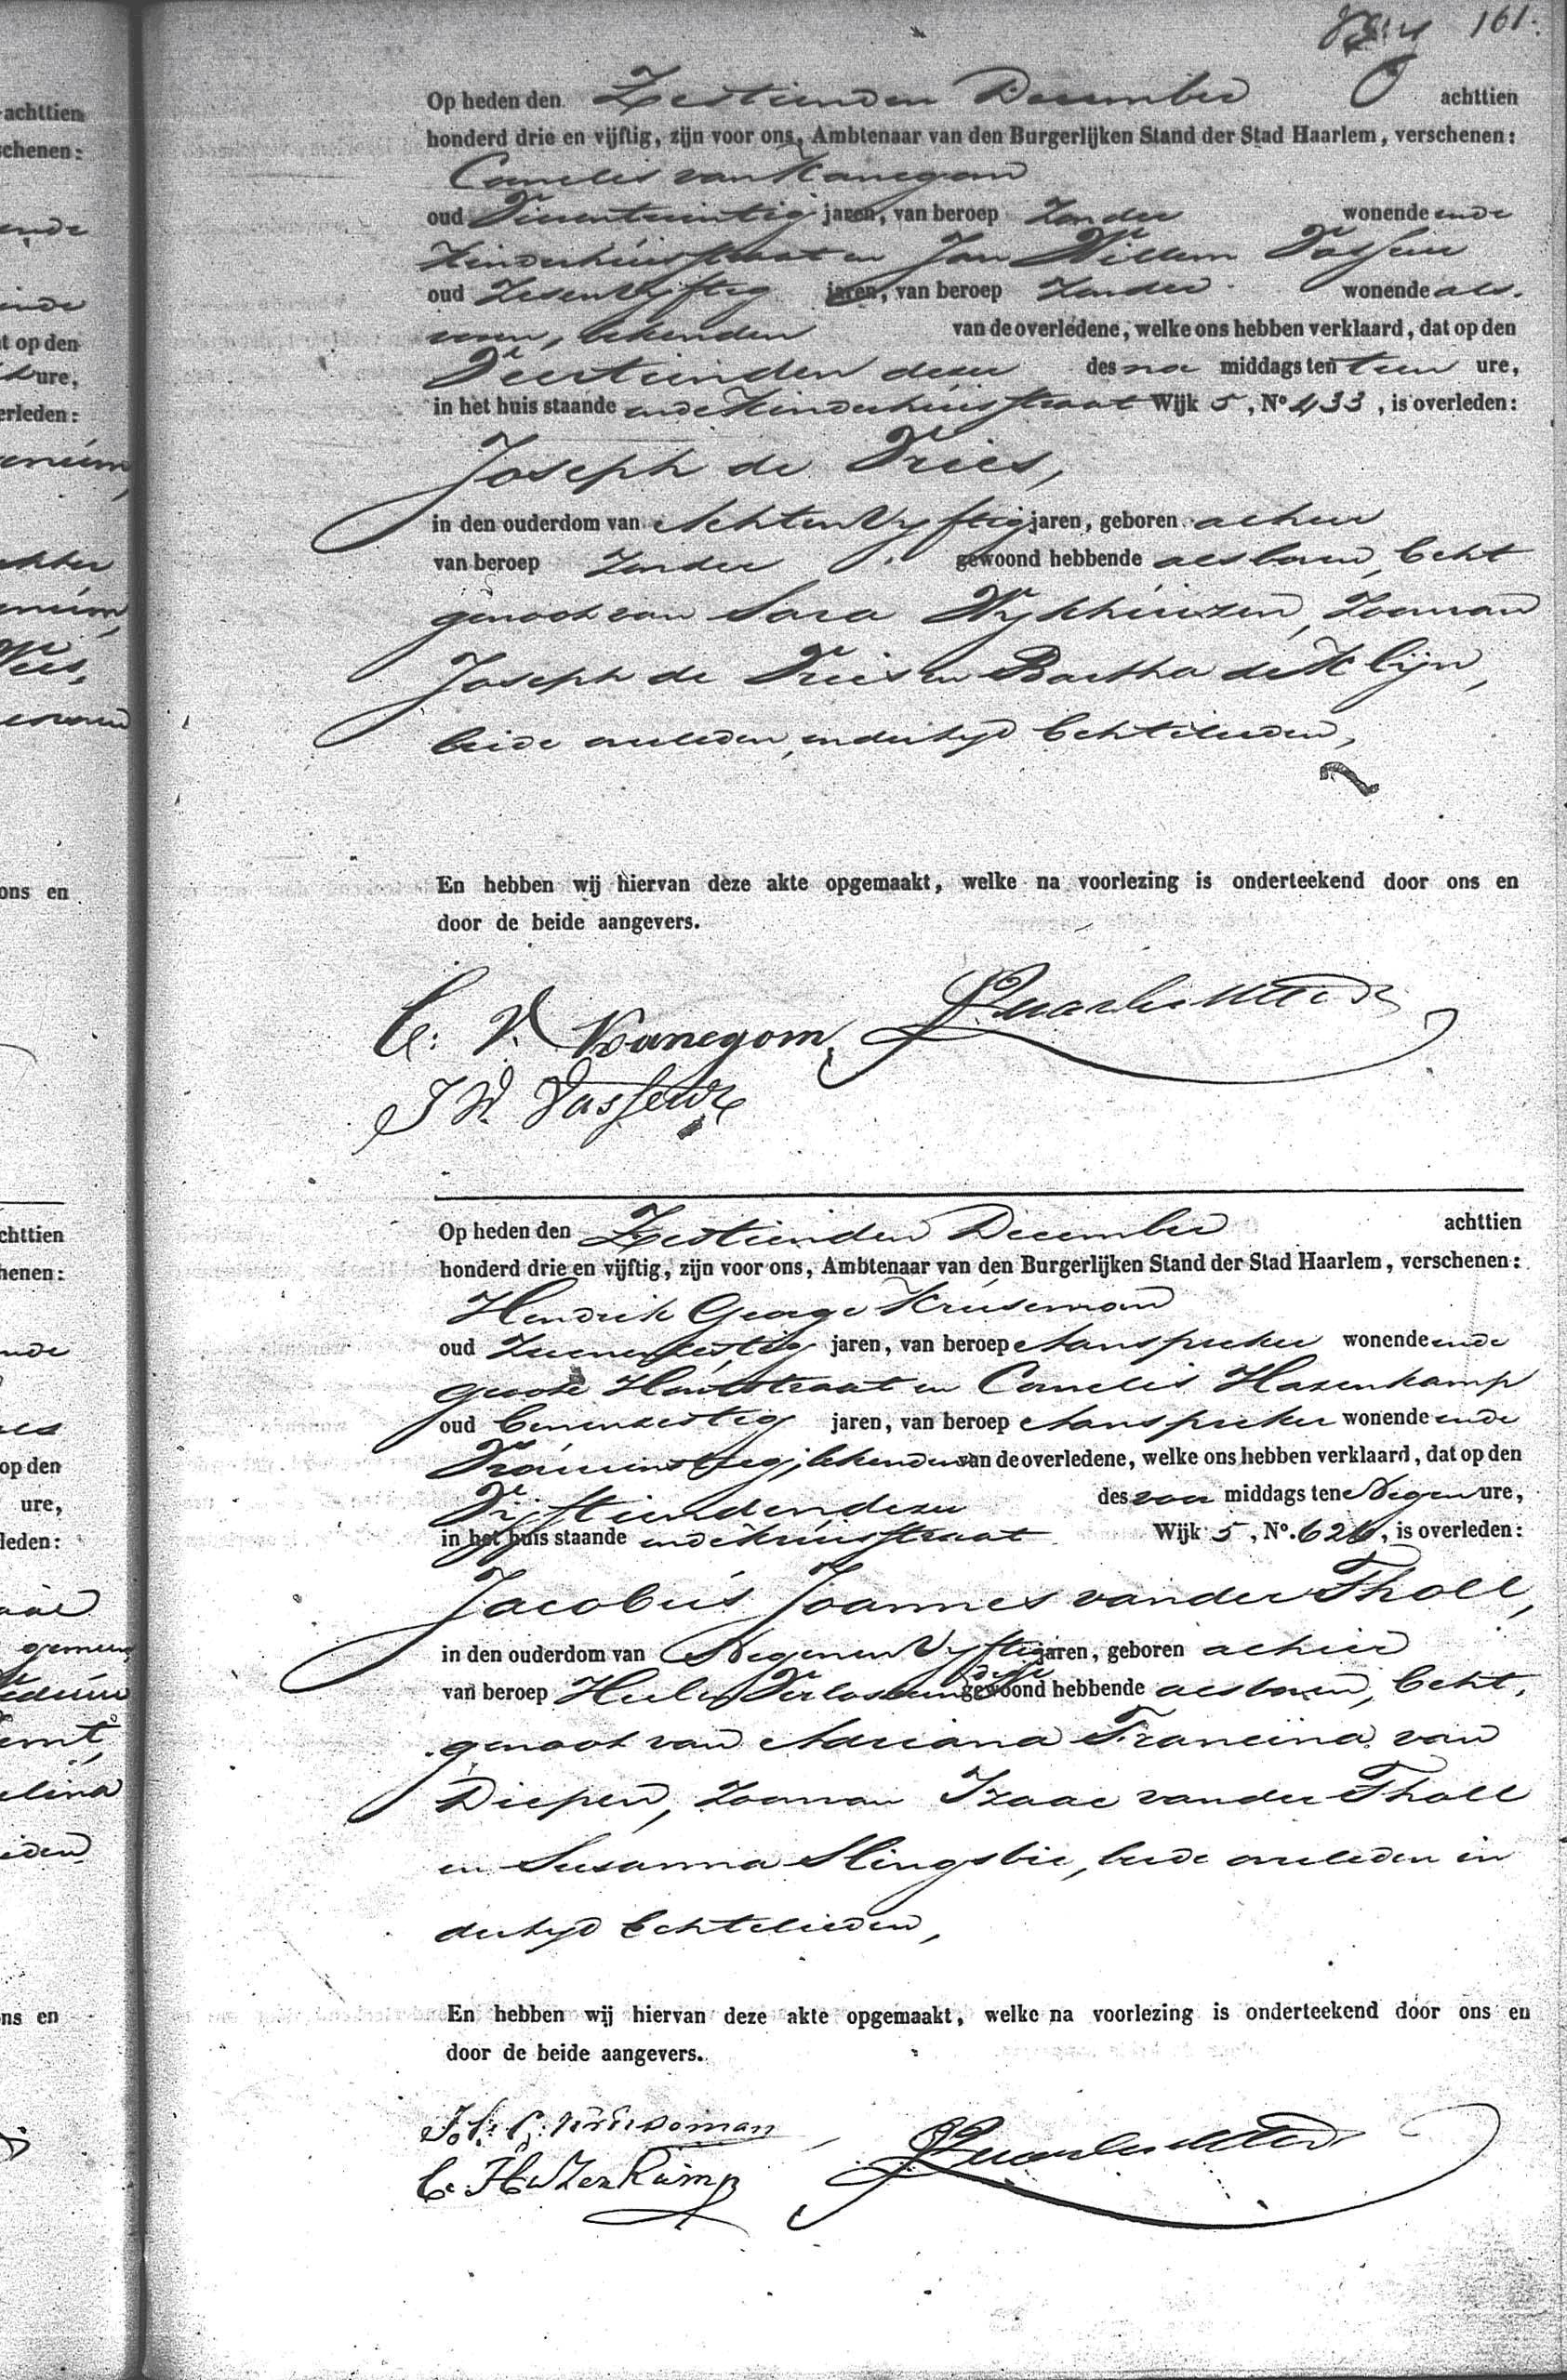 161.
Op heden den Zestienden December achttien
honderd drie en vijftig, zijn voor ons, Ambtenaar van den Burgerlijken Stand der Stad Haarlem, verschenen:
Cornelis van Kanegom
oud Vierentwintig jaren, van beroep Zonder wonende in de
Kinderhuisstraat en Jan Willem Vasseur
oud Zesenvyftig jaren, van beroep Zonder wonende als
voren, bekenden van de overledene, welke ons hebben verklaard, dat op den
Veertienden dezer des na middags ten tien ure,
in het huis staande in de Kinderhuisstraat Wijk 5, No 433, is overleden:
Joseph de Vries,
in den ouderdom van Achtenvyftig jaren, geboren alhier
van beroep Zonder gewoond hebbende als boven, Echt
genoot van Sara Wykhuizen, Zoon van
Joseph de Vries en Baatha de Klijn,
beide overleden, in der tyd Echtelieden,
En hebben wij hiervan deze akte opgemaakt, welke na voorlezing is onderteekend door ons en
door de beide aangevers.
C. V. Kanegom
J W. Vasseur
Op heden den Zestienden December achttien
honderd drie en vijftig, zijn voor ons, Ambtenaar van den Burgerlijken Stand der Stad Haarlem, verschenen:
Hendrik George Kruseman
oud Tweeenzestig jaren, van beroep Aanspreker wonende in de
groote Houtstraat en Cornelis Hazenkamp
oud Eenenzestig jaren, van beroep Aanspreker wonende in de
Vrouwensteeg, bekenden van de overledene, welke ons hebben verklaard, dat op den
Vijftienden dezer des voor middags ten Negen ure,
in het huis staande in de Kruisstraat Wijk 5, No. 626, is overleden:
Jacobus Joannes van der Tholl,
in den ouderdom van Negenenvyftig jaren, geboren alhier
van beroep Heel en Verloskundige gewoond hebbende als boven, Echt
genoot van Adriana Francina van
Diepen, Zoon van Izaac van der Tholl
en Susanna Slingsbie, beide overleden in
der tyd Echtelieden,
En hebben wij hiervan deze akte opgemaakt, welke na voorlezing is onderteekend door ons en
door de beide aangevers.
Kruseman
C. Hazenkamp